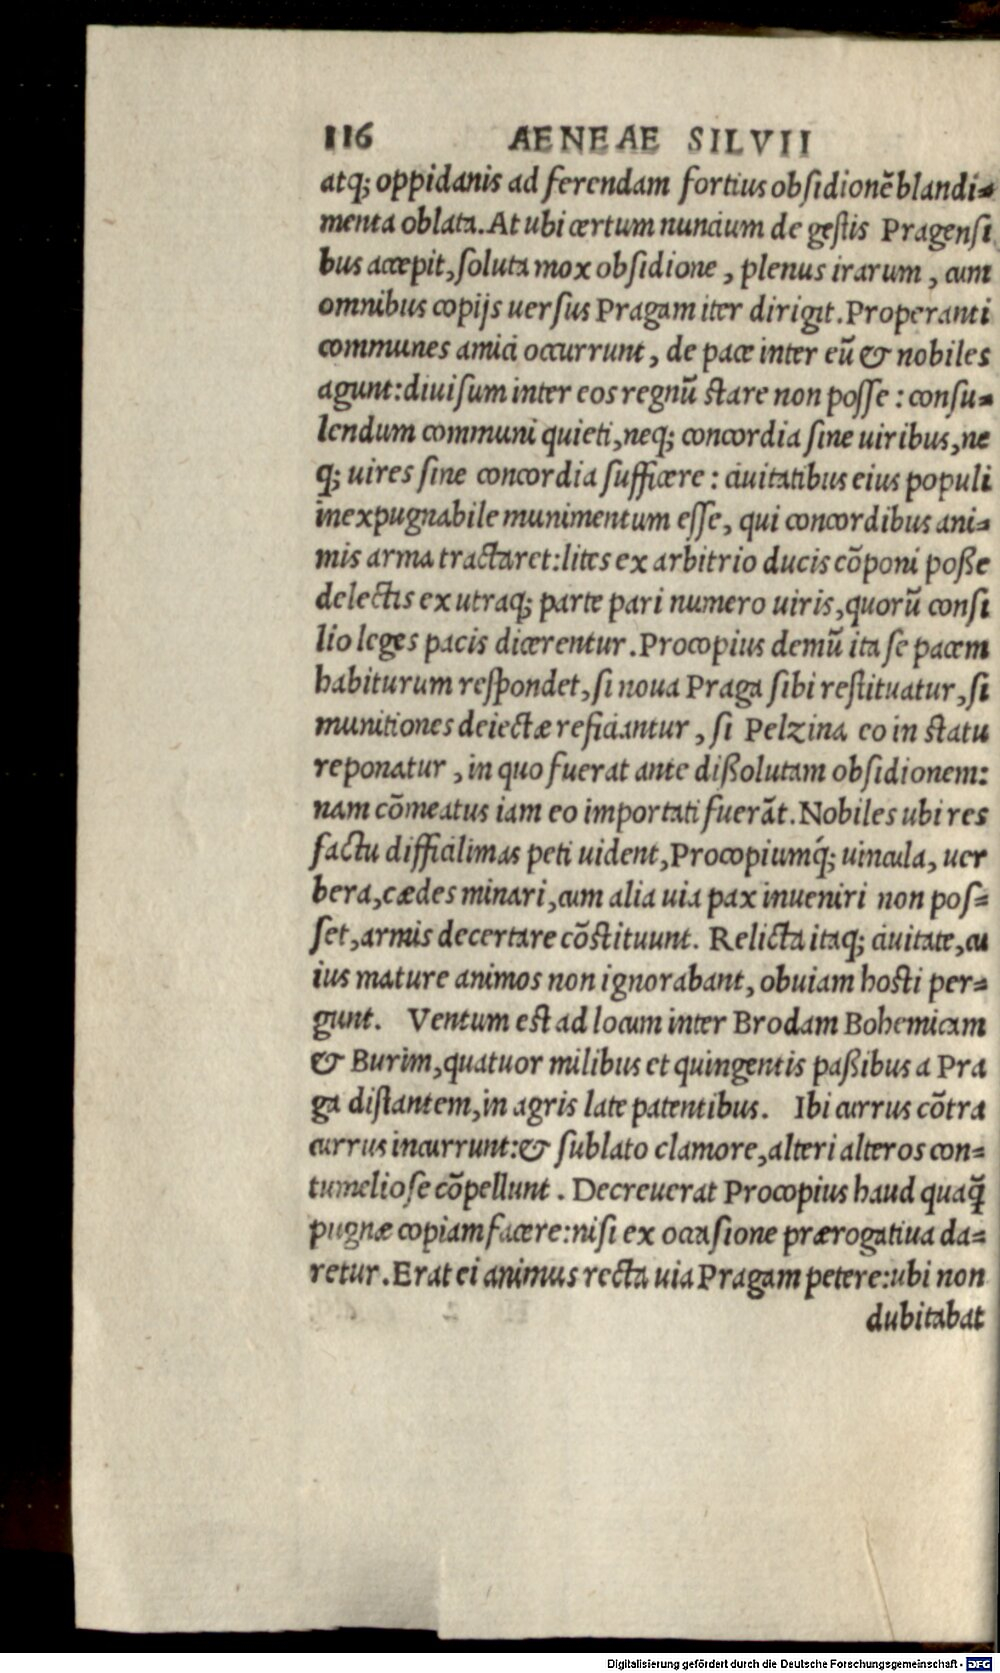 116 AENEAE SILVII
atq; oppidanis ad ferendam fortius obsidionẽ blandi-
menta oblata. At ubi certum nuncium de gestis Pragensi
bus accepit, soluta mox obsidione, plenus irarum, cum
omnibus copijs uersus Pragam iter dirigit. Properanti
communes amici occurrunt, de pace inter eũ & nobiles
agunt: diuisum inter eos regnũ stare non posse: consu-
lendum communi quieti, neq; concordia sine uiribus, ne
q; uires sine concordia sufficere: ciuitatibus eius populi
inexpugnabile munimentum esse, qui concordibus ani-
mis arma tractaret: lites ex arbitrio ducis cõponi poße
delectis ex utraq; parte pari numero uiris, quorũ consi
lio leges pacis dicerentur. Procopius demũ ita se pacem
habiturum respondet, si noua Praga sibi restituatur, si
munitiones deiectæ reficiantur, si Pelzina eo in statu
reponatur, in quo fuerat ante dißolutam obsidionem:
nam cõmeatus iam eo importati fuerãt. Nobiles ubi res
factu difficilimas peti uident, Procopiumq́; uincula, uer
bera, cædes minari, cum alia uia pax inueniri non pos-
set, armis decertare cõstituunt. Relicta itaq; ciuitate, cu
ius mature animos non ignorabant, obuiam hosti per-
gunt. Ventum est ad locum inter Brodam Bohemicam
& Burim, quatuor milibus et quingentis paßibus a Pra
ga distantem, in agris late patentibus. Ibi currus cõtra
currus incurrunt: & sublato clamore, alteri alteros con-
tumeliose cõpellunt. Decreuerat Procopius haud quaq̃
pugnæ copiam facere: nisi ex occasione prærogatiua da-
retur. Erat ei animus recta uia Pragam petere: ubi non
dubitabat
Digitalisierung gefördert durch die Deutsche Forschungsgemeinschaft - DFG